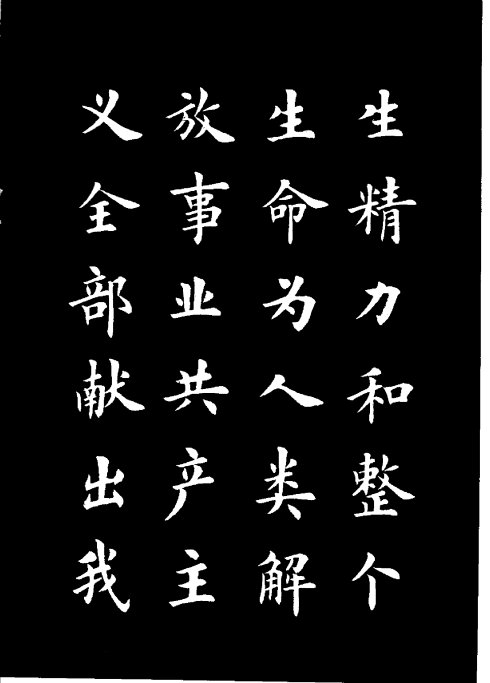 生精力和整个
生命为人类解
放事业共产主
义全部献出我